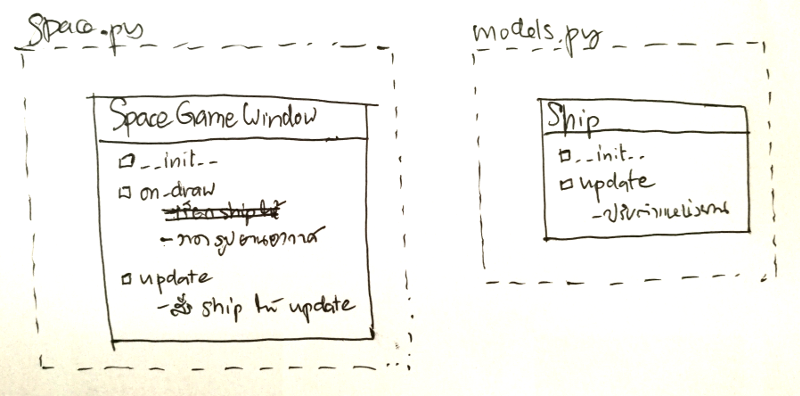 space.py
SpaceGameWindow
__init__
on_draw
- วาดรูปยานอวกาศ
update
- สั่ง ship ให้ update
models.py
Ship
__init__
update
- ปรับตำแหน่งยาน